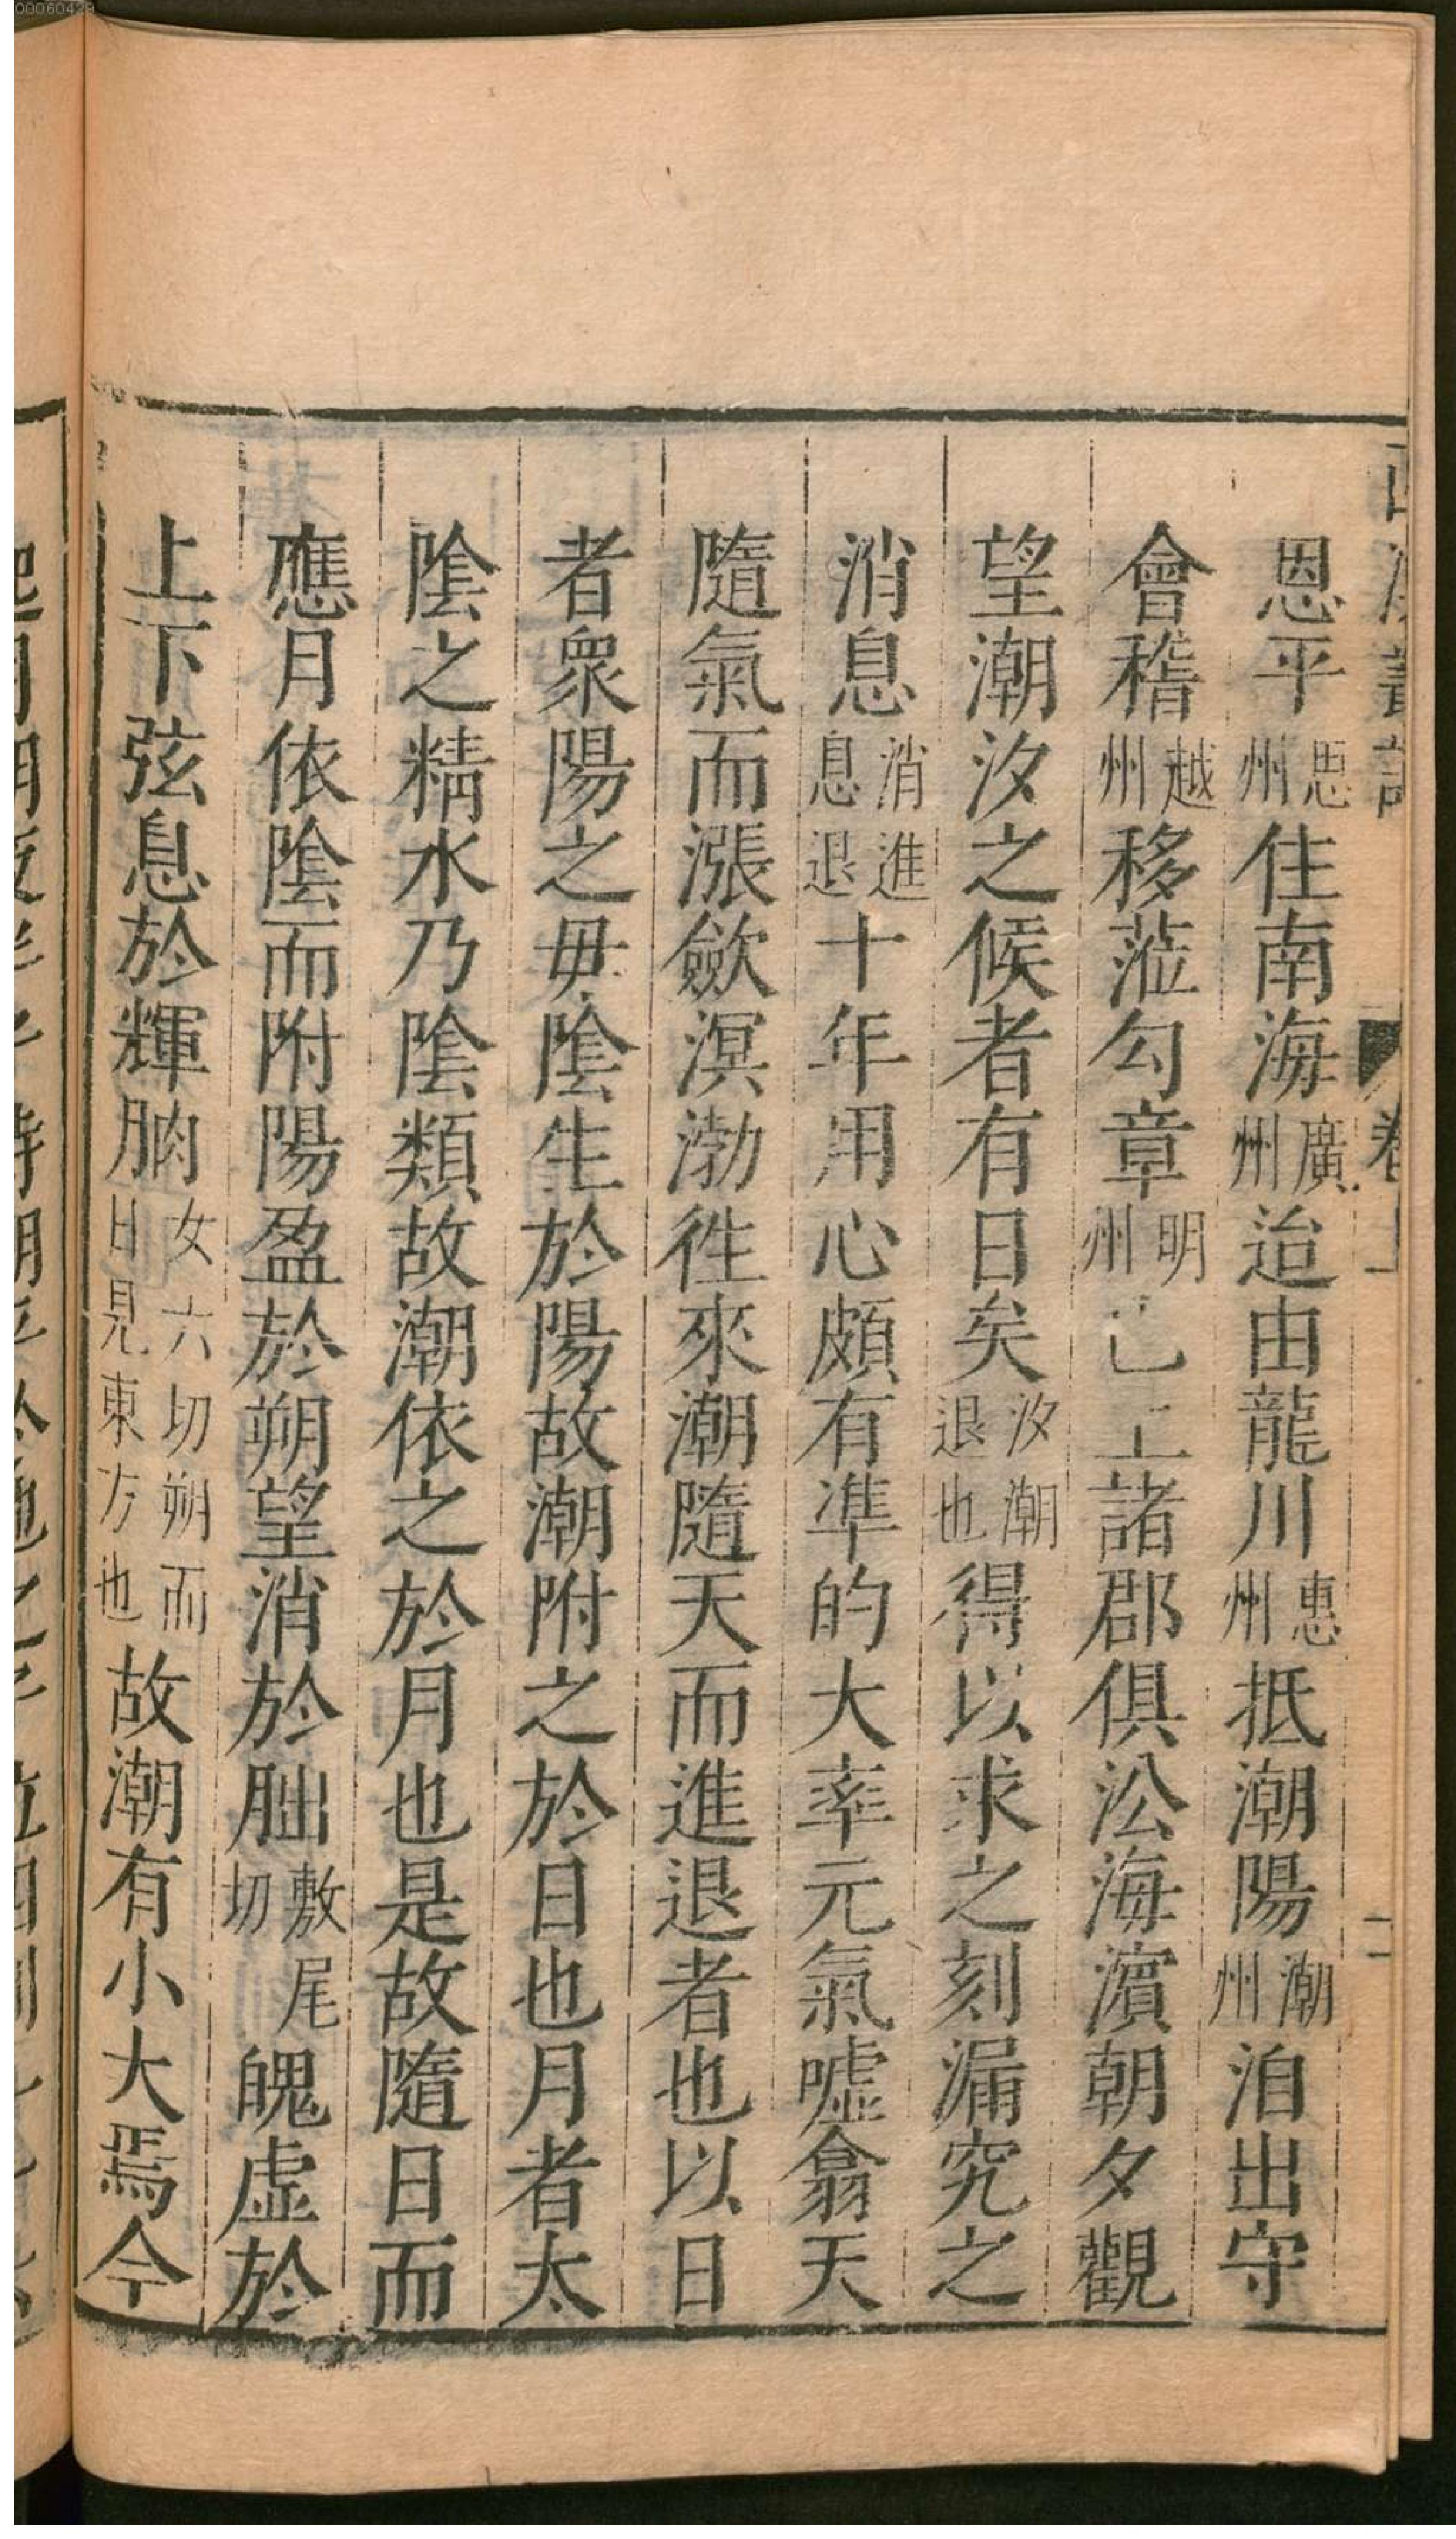 恩平恩州住南海廣州迨由龍川惠州抵潮陽潮州洎出守
會稽越州移蒞勾章明州已上諸郡俱㳂海濵朝夕觀
望潮汐之候者有日矣汐潮退也得以求之刻漏究之
消息消息進退十年用心頗有凖的大率元氣噓翕天
隨氣而漲歛溟渤徃來潮隨天而進退者也以日
者衆陽之毋陰生於陽故潮附之於日也月者太
陰之精水乃陰類故潮依之於月也是故隨日而
應月依陰而附陽盈於朔望消於朏敷尾切魄虛於
上下弦息於輝朒女六切朔而日見東方也故潮有小大焉今
卷上
二
00060429